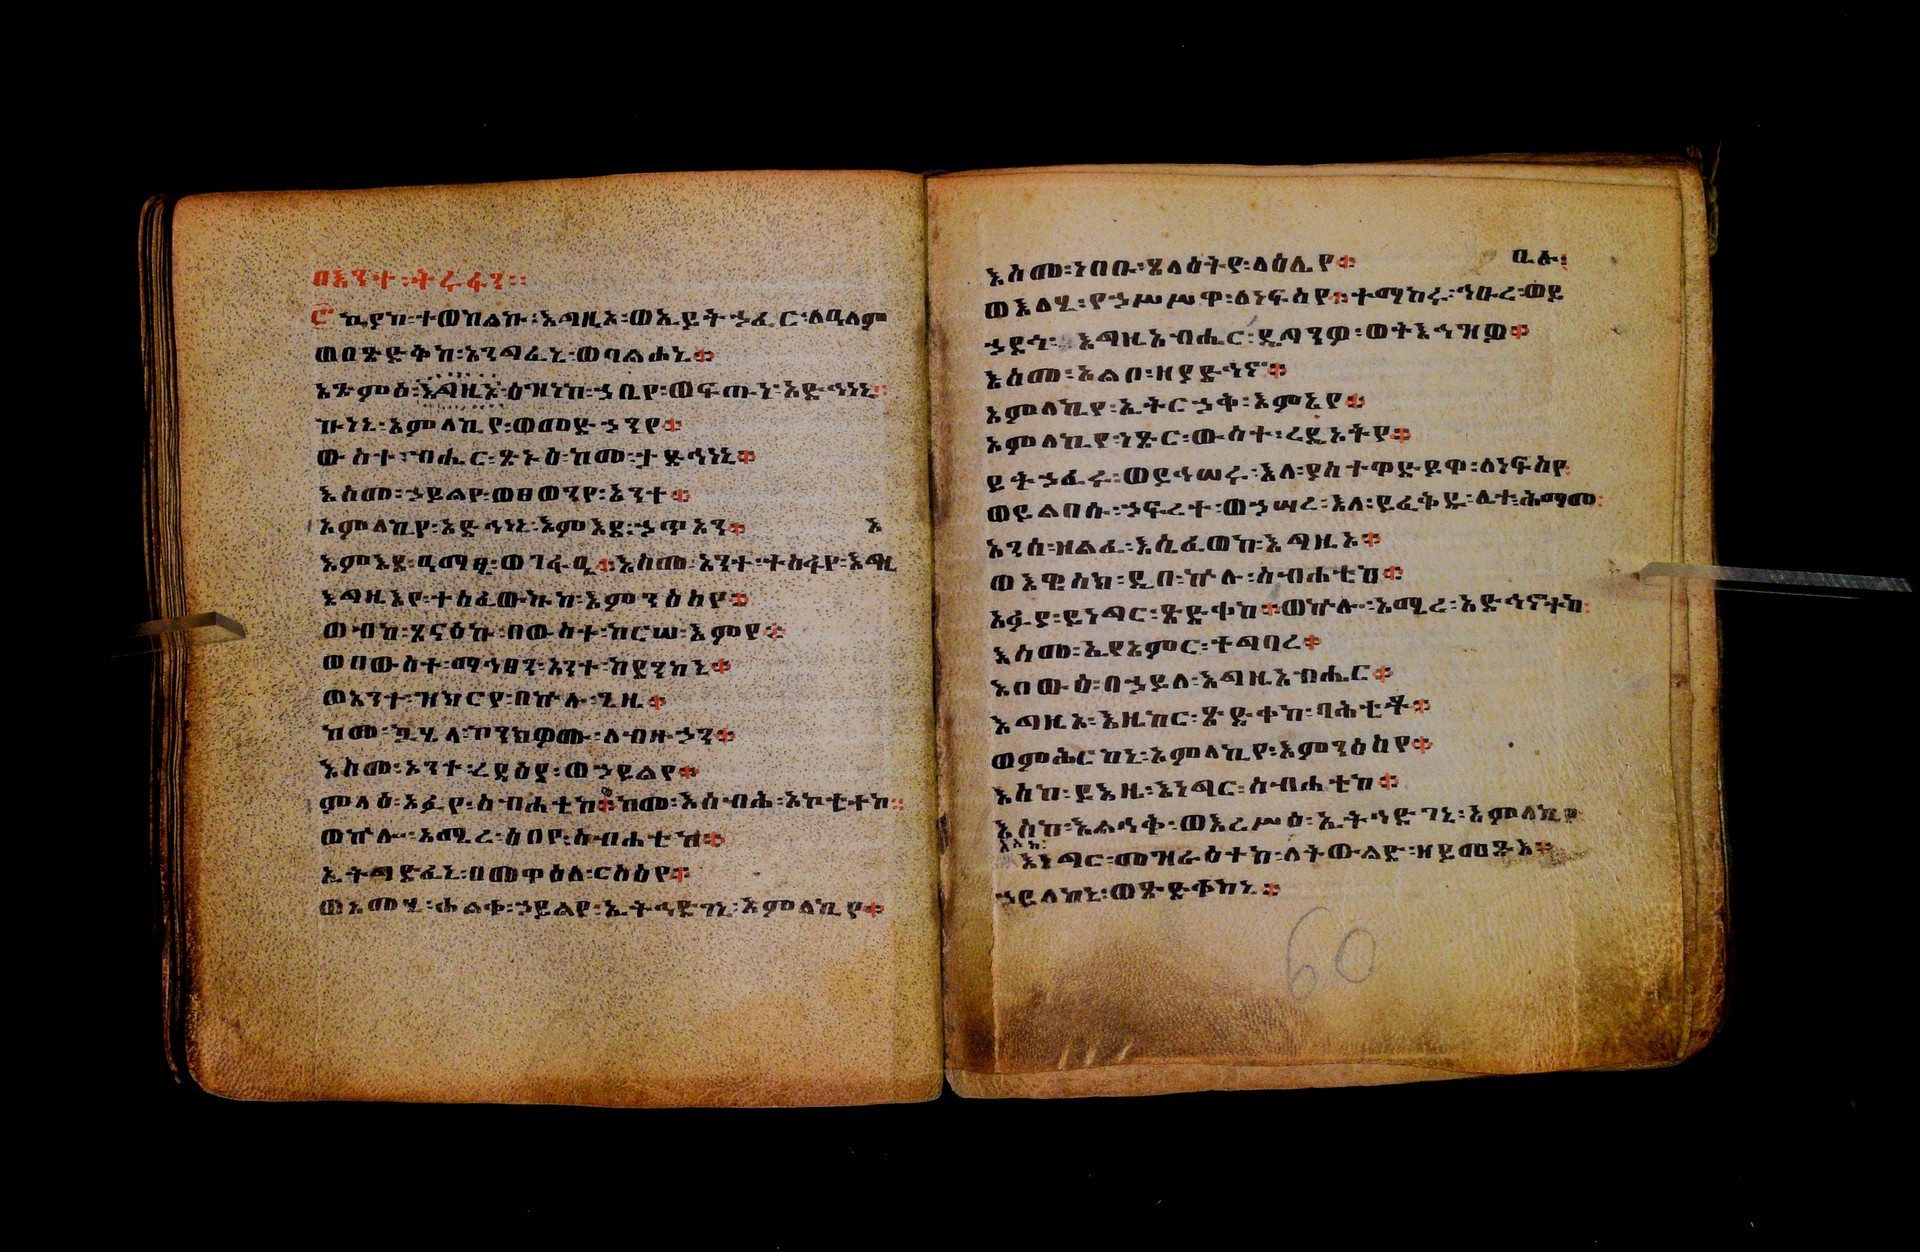 በእንተ፡ትሩፋን።
፸ ኪያከ፡ተወከልኩ፡እግዚኦ፡ወኢይትኃፈር፡ለዓለም
ወበጽድቅከ፡አንግፈኒ፡ወባልሐኒ፨
አጽምዕ፡እግዚኦ፡ዕዝነከ፡ኃቤየ፡ወፍጡነ፡አድኅነኒ።
ኩነኒ፡አምላኪየ፡ወመድኃንየ፨
ውስተ፡ብሔር፡ጽኑዕ፡ከመ፡ታድኅነኒ፨
እስመ፡ኃይልየ፡ወፀወንየ፡አንተ፨
አምላኪየ፡አድኅነኒ፡እምእደ፡ኃጥአን፨
እምእደ፡ዓማፂ፡ወገፋዒ፨እስመ፡አንተ፡ተስፋየ፡እግዚ አ
እግዚእየ፡ተሰፈውኩከ፡እምንዕስየ፨
ወብከ፡ጸናዕኩ፡በውስተ፡ከርሠ፡እምየ፨
ወበውስተ፡ማኅፀን፡አንተ፡ከደንከኒ፨
ወአንተ፡ዝክርየ፡በኵሉ፡ጊዜ፨
ከመ፡ጌሄለ፡ኮንክዎሙ፡ለብዙኃን፨
እስመ፡አንተ፡ረዳእየ፡ወኃይልየ፨
ምላዕ፡አፉየ፡ስብሐቲከ፨ከመ፡እሰብሕ፡አኮቴተከ።
ወኵሎ፡አሚረ፡ዕበየ፡ስብሐቲከ፨
ኢትግድፈኒ፡በመዋዕለ፡ርስዕየ፨
ወአመሂ፡ሐልቀ፡ኃይልየ፡ኢትኅድገኒ፡አምላኪየ፨
እስመ፡ነበቡ፡ጸላዕትየ፡ላዕሌየ፨ ቢሉ፡
ወእለሂ፡የኃሥሥዋ፡ለነፍስየ፨ተማከሩ፡ኅቡረ፡ወይ
ኃደጎ፡እግዚአብሔር፡ዴግንዎ፡ወትእኅዝዎ፨
እስመ፡አልቦ፡ዘያድኅኖ፨
አምላኪየ፡ኢትርኃቅ፡እምኔየ፨
አምላኪየ፡ነጽር፡ውስተ፡ረዲኦትየ፨
ይትኃፈሩ፡ወይኅሠሩ፡እለ፡ያስተዋድይዋ፡ለነፍስየ
ወይልበሱ፡ኃፍረተ፡ወኃሣረ፡እለ፡ይፈቅዱ፡ሊተ፡ሕማመ፡
አንሰ፡ዘልፈ፡እሴፈወከ፡እግዚኦ፨
ወእዌስክ፡ዲበ፡ኵሉ፡ስብሐቲከ፨
አፉየ፡ይነግር፡ጽድቀከ፨ወኵሎ፡አሚረ፡አድኅኖተከ፡
እስመ፡ኢያአምር፡ተግባረ፨
እበውዕ፡በኃይለ፡እግዚአብሔር፨
እግዚኦ፡እዜከር፡ጽድቀከ፡ባሕቲቶ፨
ወምሕርከኒ፡አምላኪየ፡እምንዕስየ፨
እስከ፡ይእዜ፡እነግር፡ስብሐቲከ፨
እስከ፡እልኅቅ፡ወእረሥዕ፡ኢትኅድገኒ፡አምላኪየ
እስከ፡
እነግር፡መዝራዕተከ፡ለትውልድ፡ዘይመጽእ፨
ኃይለከኒ፡ወጽድቅከኒ፨
60